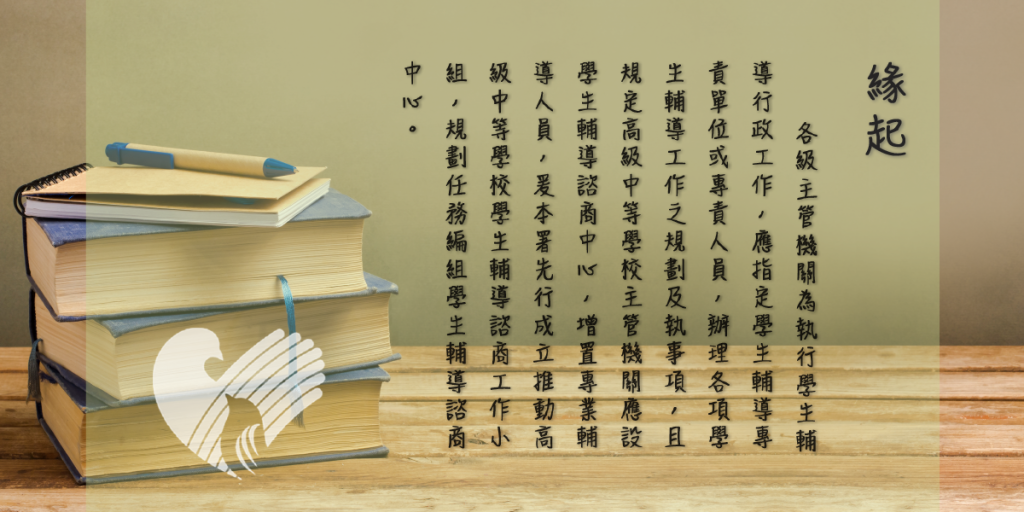 緣起
各級主管機關為執行學生輔
導行政工作，應指定學生輔導專
責單位或專責人員，辦理各項學
生輔導工作之規劃及執事項，且
規定高級中等學校主管機關應設
學生輔導諮商中心，增置專業輔
導人員，爰本署先行成立推動高
級中等學校學生輔導諮商工作小
組，規劃任務編組學生輔導諮商
中心。